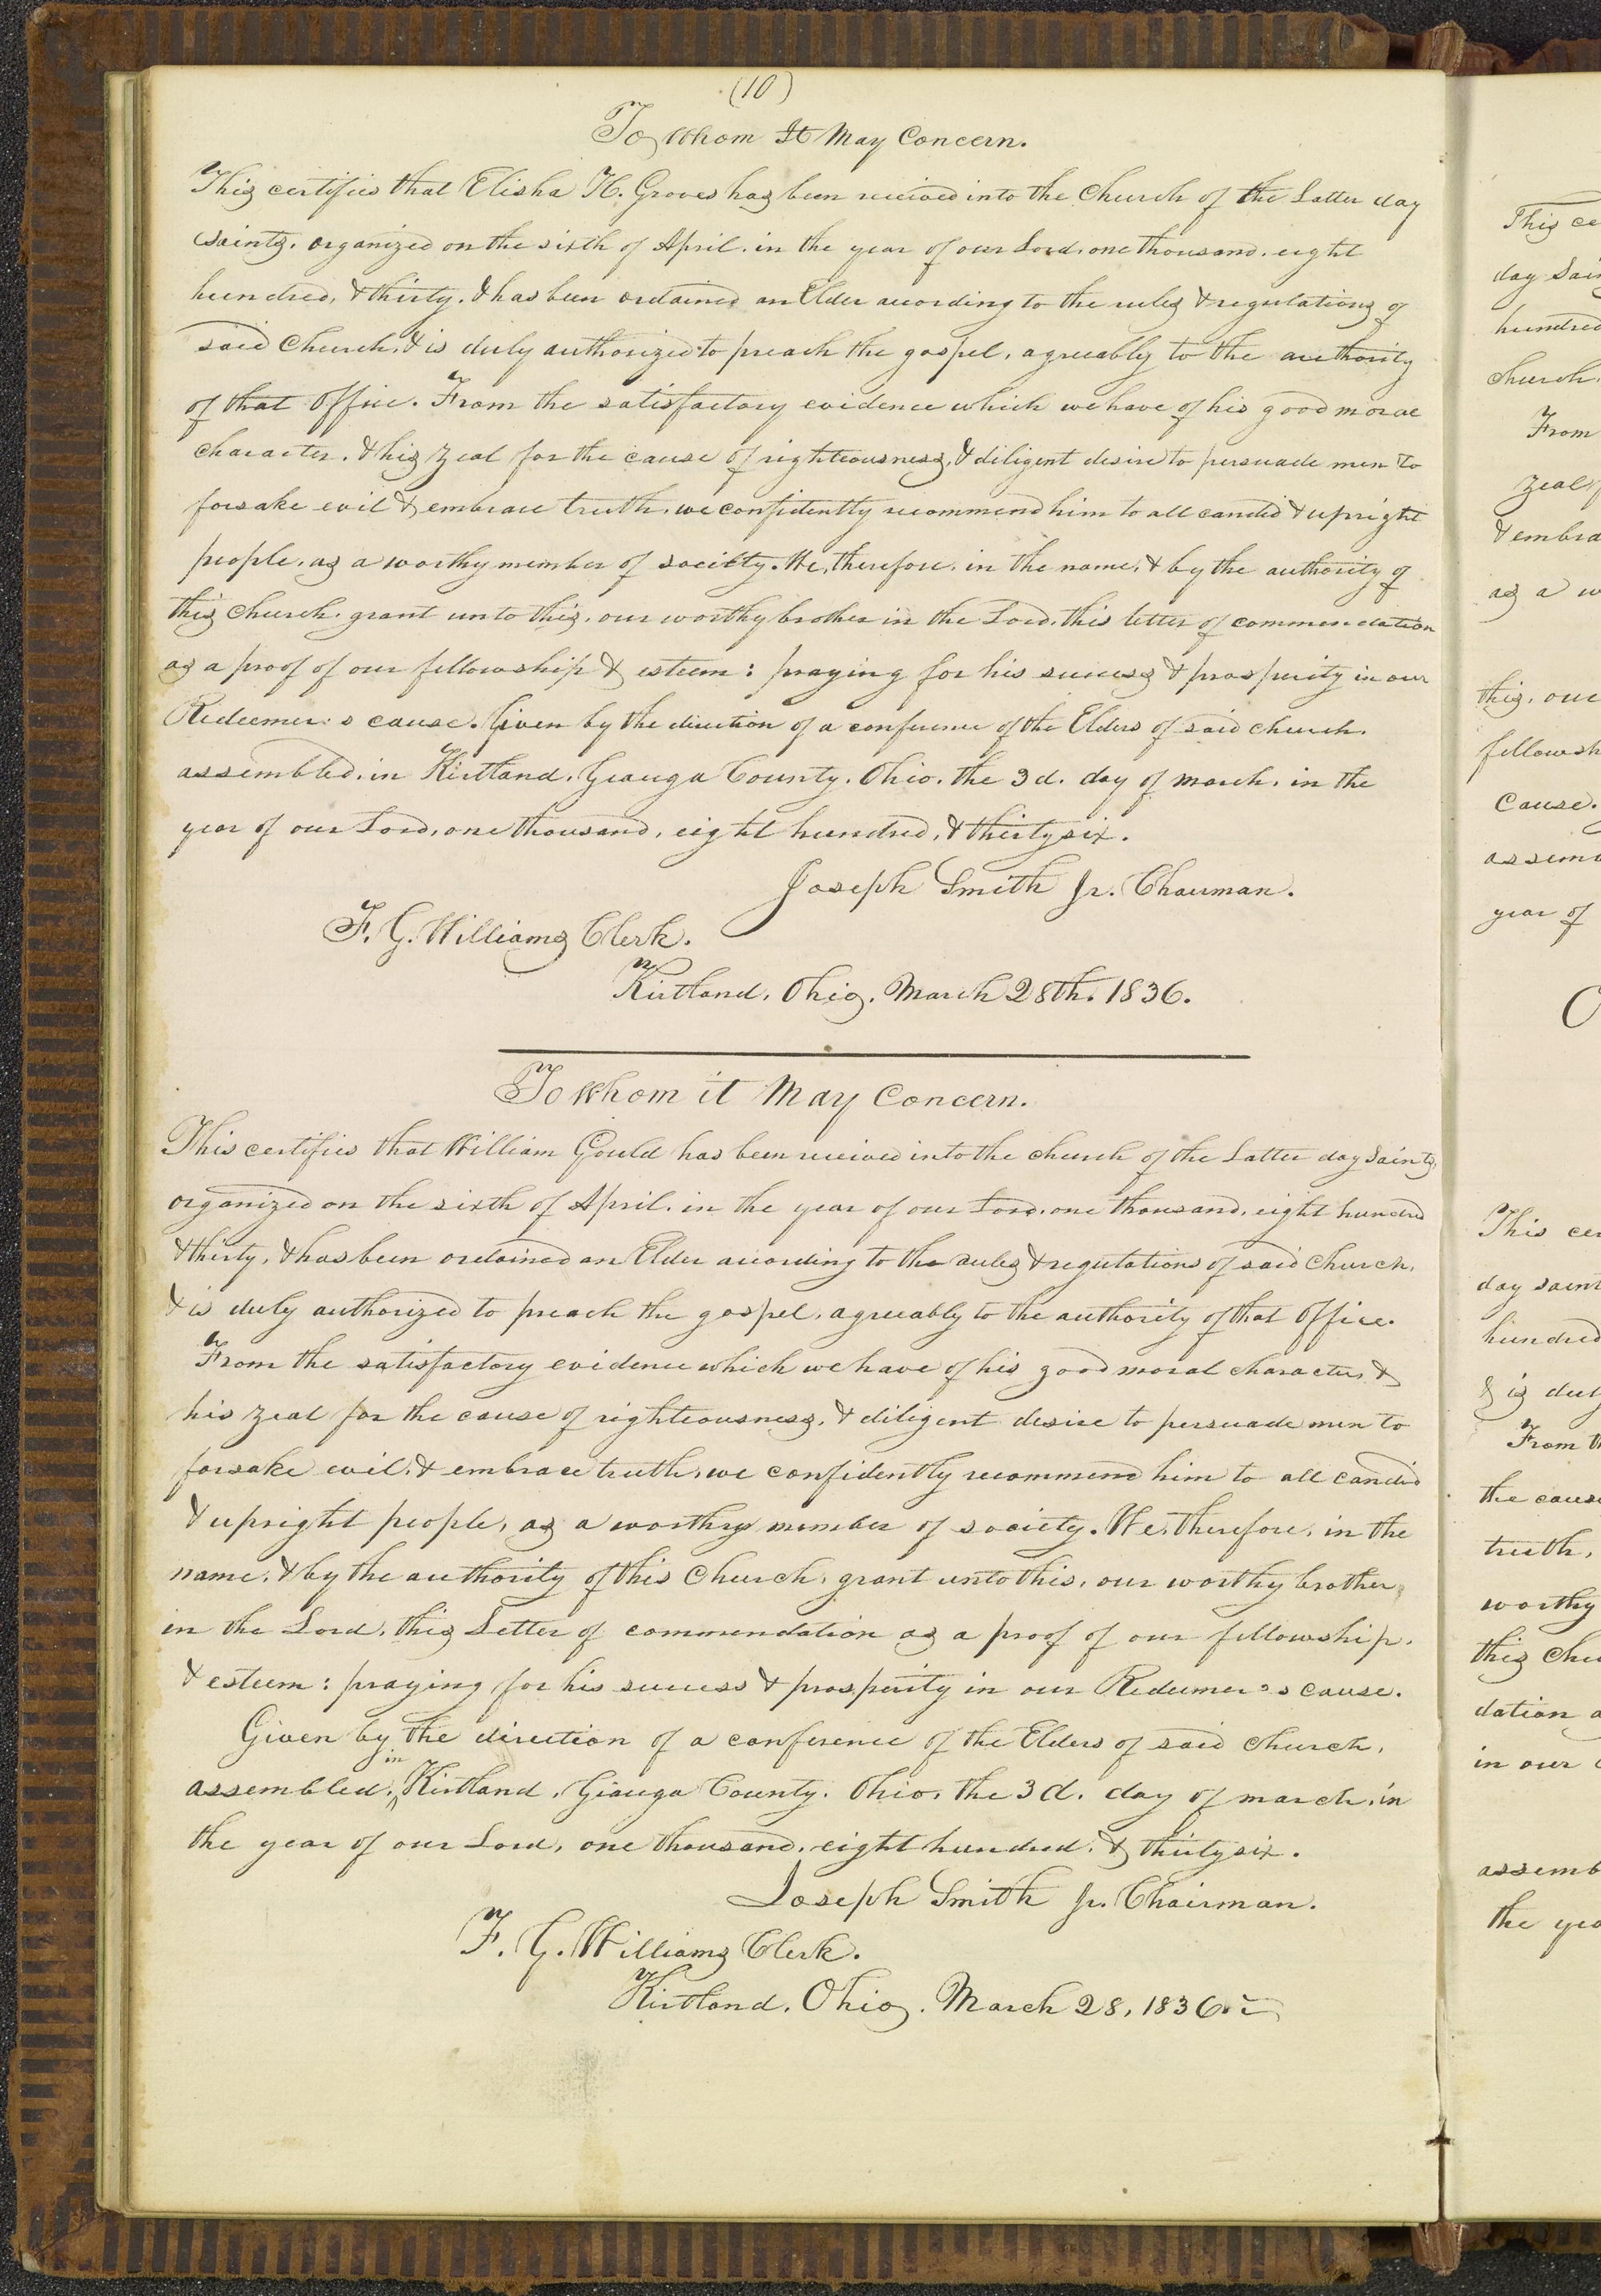 (10)
To Whom It May Concern.
This certifies that Elisha H. Groves has been received into the Church of the Latter day
saints, organized on the sixth of April, in the year of our Lord, one thousand, eight
hundred, & thirty, & has been ordained an Elder according to the rules & regulations of
said Church, & is duly authorized to preach the gospel, agreeably to the authority
of that Office. From the satisfactory evidence which we have of his good moral
character, & his zeal for the cause of righteousness, & diligent desire to persuade men to
forsake evil & embrace truth, we confidently recommend him to all candid & upright
people, as a worthy member of society. We, therefore, in the name, & by the authority of
this Church, grant unto this, our worthy brother in the Lord, this letter of commendation
as a proof of our fellowship & esteem: praying for his success & prosperity in our
Redeemer's cause. Given by the direction of a conference of the Elders of said church,
assembled, in Kirtland, Geauga County, Ohio, the 3d. day of march, in the
year of our Lord, one thousand, eight hundred, & thirty six.
Joseph Smith Jr. Chairman.
F. G. Williams Clerk.
Kirtland, Ohio, March 28th. 1836.
To Whom it May Concern.
This certifies that William Gould has been received into the church of the Latter day Saints,
organized on the sixth of April, in the year of our Lord, one thousand, eight hundred
& thirty, & has been ordained an Elder according to the rules & regulations of said Church,
& is duly authorized to preach the gospel, agreeably to the authority of that Office.
From the satisfactory evidence which we have of his good moral character, &
his zeal for the cause of righteousness, & diligent desire to persuade men to
forsake evil, & embrace truth, we confidently recommend him to all candid
& upright people, as a worthy member of society. We, therefore, in the
name, & by the authority of this Church, grant unto this, our worthy brother,
in the Lord, this Letter of commendation as a proof of our fellowship,
& esteem: praying for his success & prosperity in our Redeemer's cause.
Given by the direction of a conference of the Elders of said church,
assembled, in Kirtland, Geauga County, Ohio, the 3d. day of march, in
the year of our Lord, one thousand, eight hundred, & thirty six.
Joseph Smith Jr. Chairman.
F. G. Williams Clerk.
Kirtland, Ohio, March 28, 1836.
This ce
day Sain
hundred
church,
From
zeal f
& embra
as a w
this, our
fellowsh
Cause.
assem
year of
O
This cer
day saint
hundred
& is duly
From th
the cause
truth,
worthy
this Chu
dation a
in our
assemb
the yea